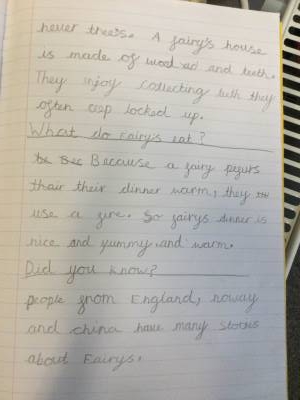 never theirs. A fairy's house
is made of wood and teeth.
They injoy collecting teeth they
often locked up.
What do fairys eat?
Because a fairy
thair their dinner warm, they
use a fire. So fairys dinner is
nice and yummy and warm.
Did you know?
people from England, noway
and china have many stories
about Fairys.